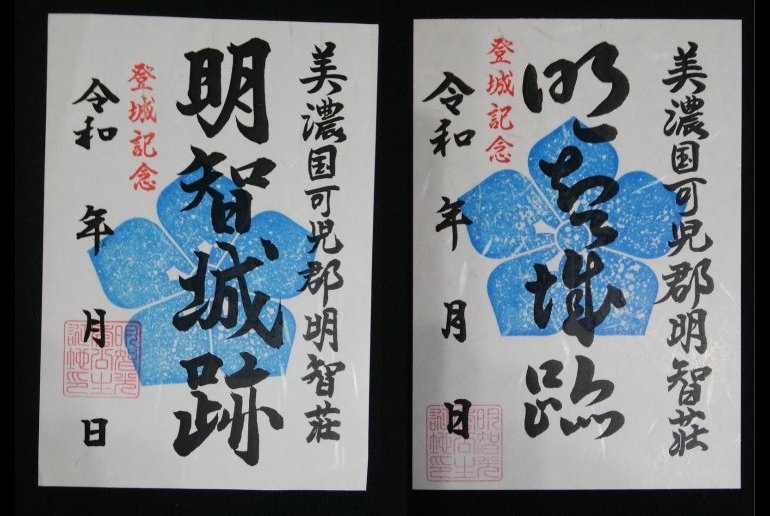 美濃国可児郡明智荘
明智城跡
登城記念
令和 年 月 日
美濃国可児郡明智荘
明智城跡
登城記念
令和 年 月 日